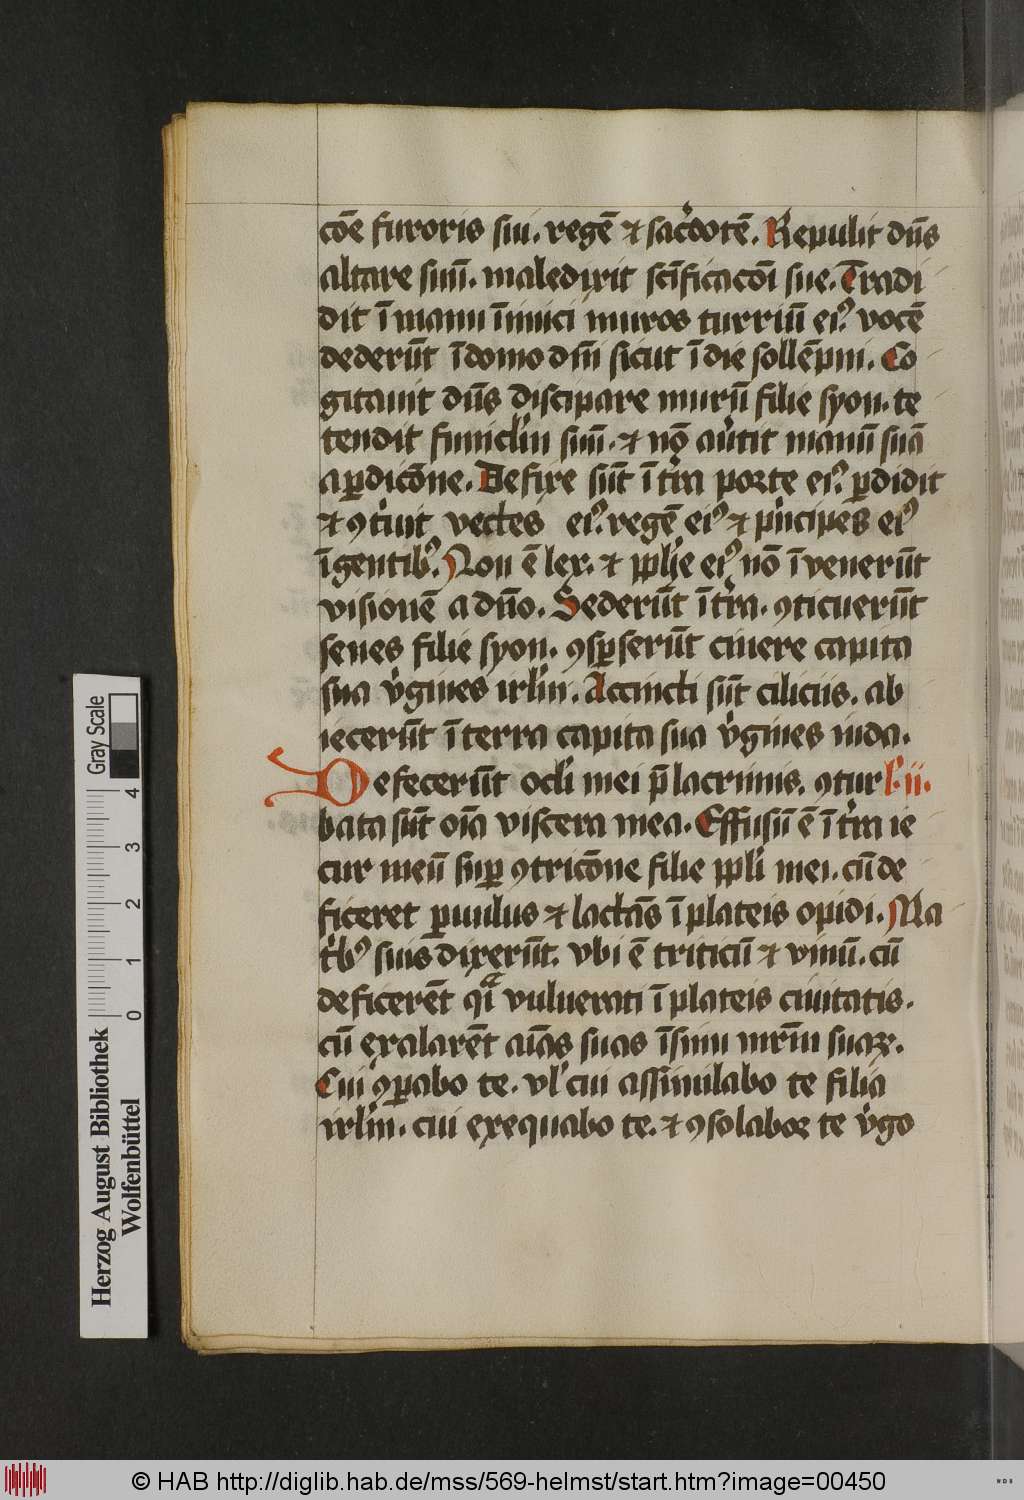 cōe furoris sui. regē ⁊ sac̾dotē. Repulit dn̄s
altare suū. maledixit sc̄ificacōi sue. Tradi
dit ī manu īimici muros turriū eiꝰ vocē
dederūt ī domo dn̄i sicut ī die sollēpni. Co
gitauit dn̄s discipare murū filie syon. te
tendit funicl̄m suū. ⁊ nō au̾tit manū suā
a ꝑdicōne. Defixe sūt ī t̾ra porte eiꝰ ꝑdidit
⁊ ꝯt̾uit vectes eiꝰ regē eiꝰ ⁊ pͥncipes eiꝰ
ī gentibꝰ. Non ē lex. ⁊ ꝓphe eiꝰ nō īvenerūt
visionē a dn̄o. Sederūt ī t̾ra. ꝯticuerūt
senes filie syon. ꝯsꝑserūt cinere capita
sua v̾gines irl̄m. Accincti sūt ciliciis. ab
iecerūt ī terra capita sua v̾gines iuda.
Defecerūt ocl̄i mei p̄ lacrimis. ꝯtur l̾ ii.
bata sūt oīa viscera mea. Effusū ē ī t̾ra ie
cur meū suꝑ ꝯtricōne filie ppl̄i mei. cū de
ficeret ꝑuulus ⁊ lactās ī plateis opidi. Ma
t̾bꝰ suis dixerūt. vbi ē triticū ⁊ vinū. cū
deficerēt qͣi vulnerati ī plateis ciuitatis.
cū exalarēt aīas suas ī sinu mr̄m suaꝝ.
Cui ꝯꝑabo te. vl̾ cui assimilabo te filia
irl̄m. cui exequabo te. ⁊ ꝯsolabor te v̾go
Gray Scale
4
3
2
1
0
Herzog August Bibliothek
Wolfenbüttel
© HAB http://diglib.hab.de/mss/569-helmst/start.htm?image=00450